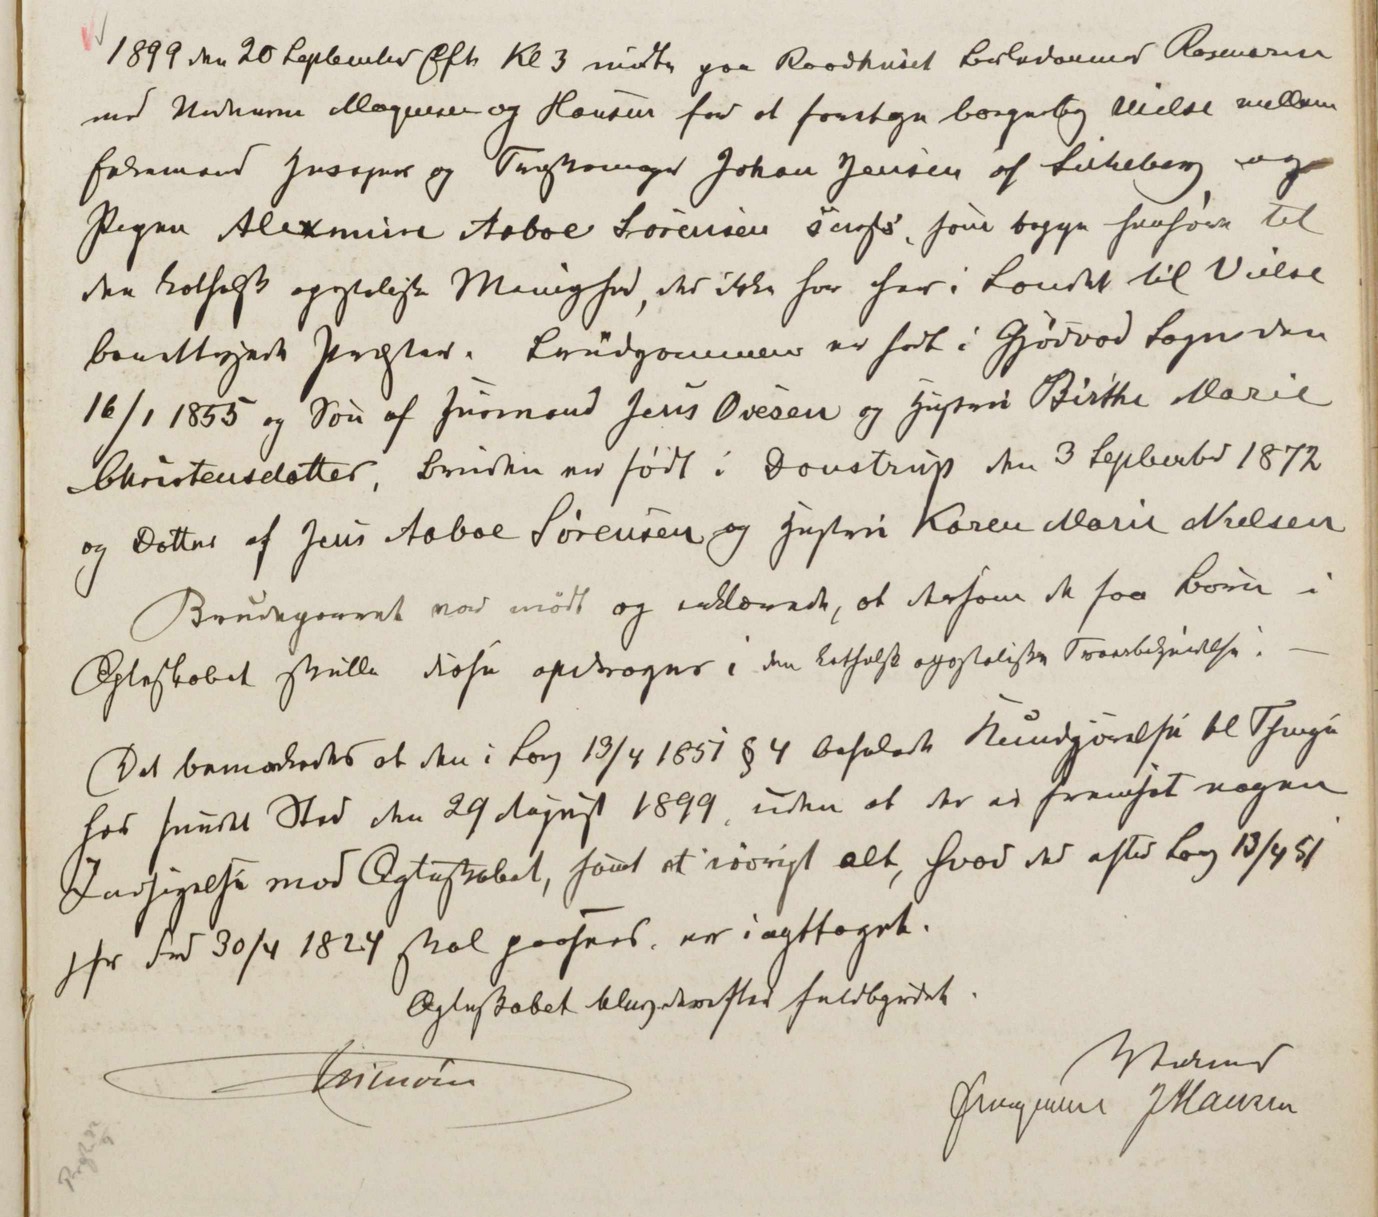 1899 den 20 September Eft. Kl 3 mødte paa Raadhuset
med Vidnerne Magnussen og Hansen for at foretage borgerlig Vielse mellem
og Johan Jensen af Silkeborg og
Pigen Alexmine Aaboe Sørensen sammesteds, som begge henhøre til
den katholsk apostoliske Menighed, der ikke har her i Landet til Vielse
berettigede Præster. Brudgommen er født i Gjødvad Sogn den
16/1 1855 og Søn af Huusmand Jens Ovesen og Hustru Birthe Marie
Christensdatter, Bruden er født i Daustrup den 3 September 1872
og Datter af Jens Aaboe Sørensen og Hustru Karen Marie Nielsen
Brudeparret var mødt og erklærede, at dersom de faa Børn i
Ægteskabet skulle disse opdrages i den katholsk apostoliske Troesbekjendelse. —
Det bemærkedes at den i Lov 13/4 1851 § 4 befalede Kundgjørelse til Thinge
har fundet Sted den 29 August 1899, uden at der er fremsat nogen
Indsigelse mod Ægteskabet, samt at iøvrigt alt, hvad der efter Lov 13/4 51
jfr Frd 30/4 1824 skal paasees, er iagttaget.
Ægteskabet blev derefter fuldbyrdet.
J Hansen